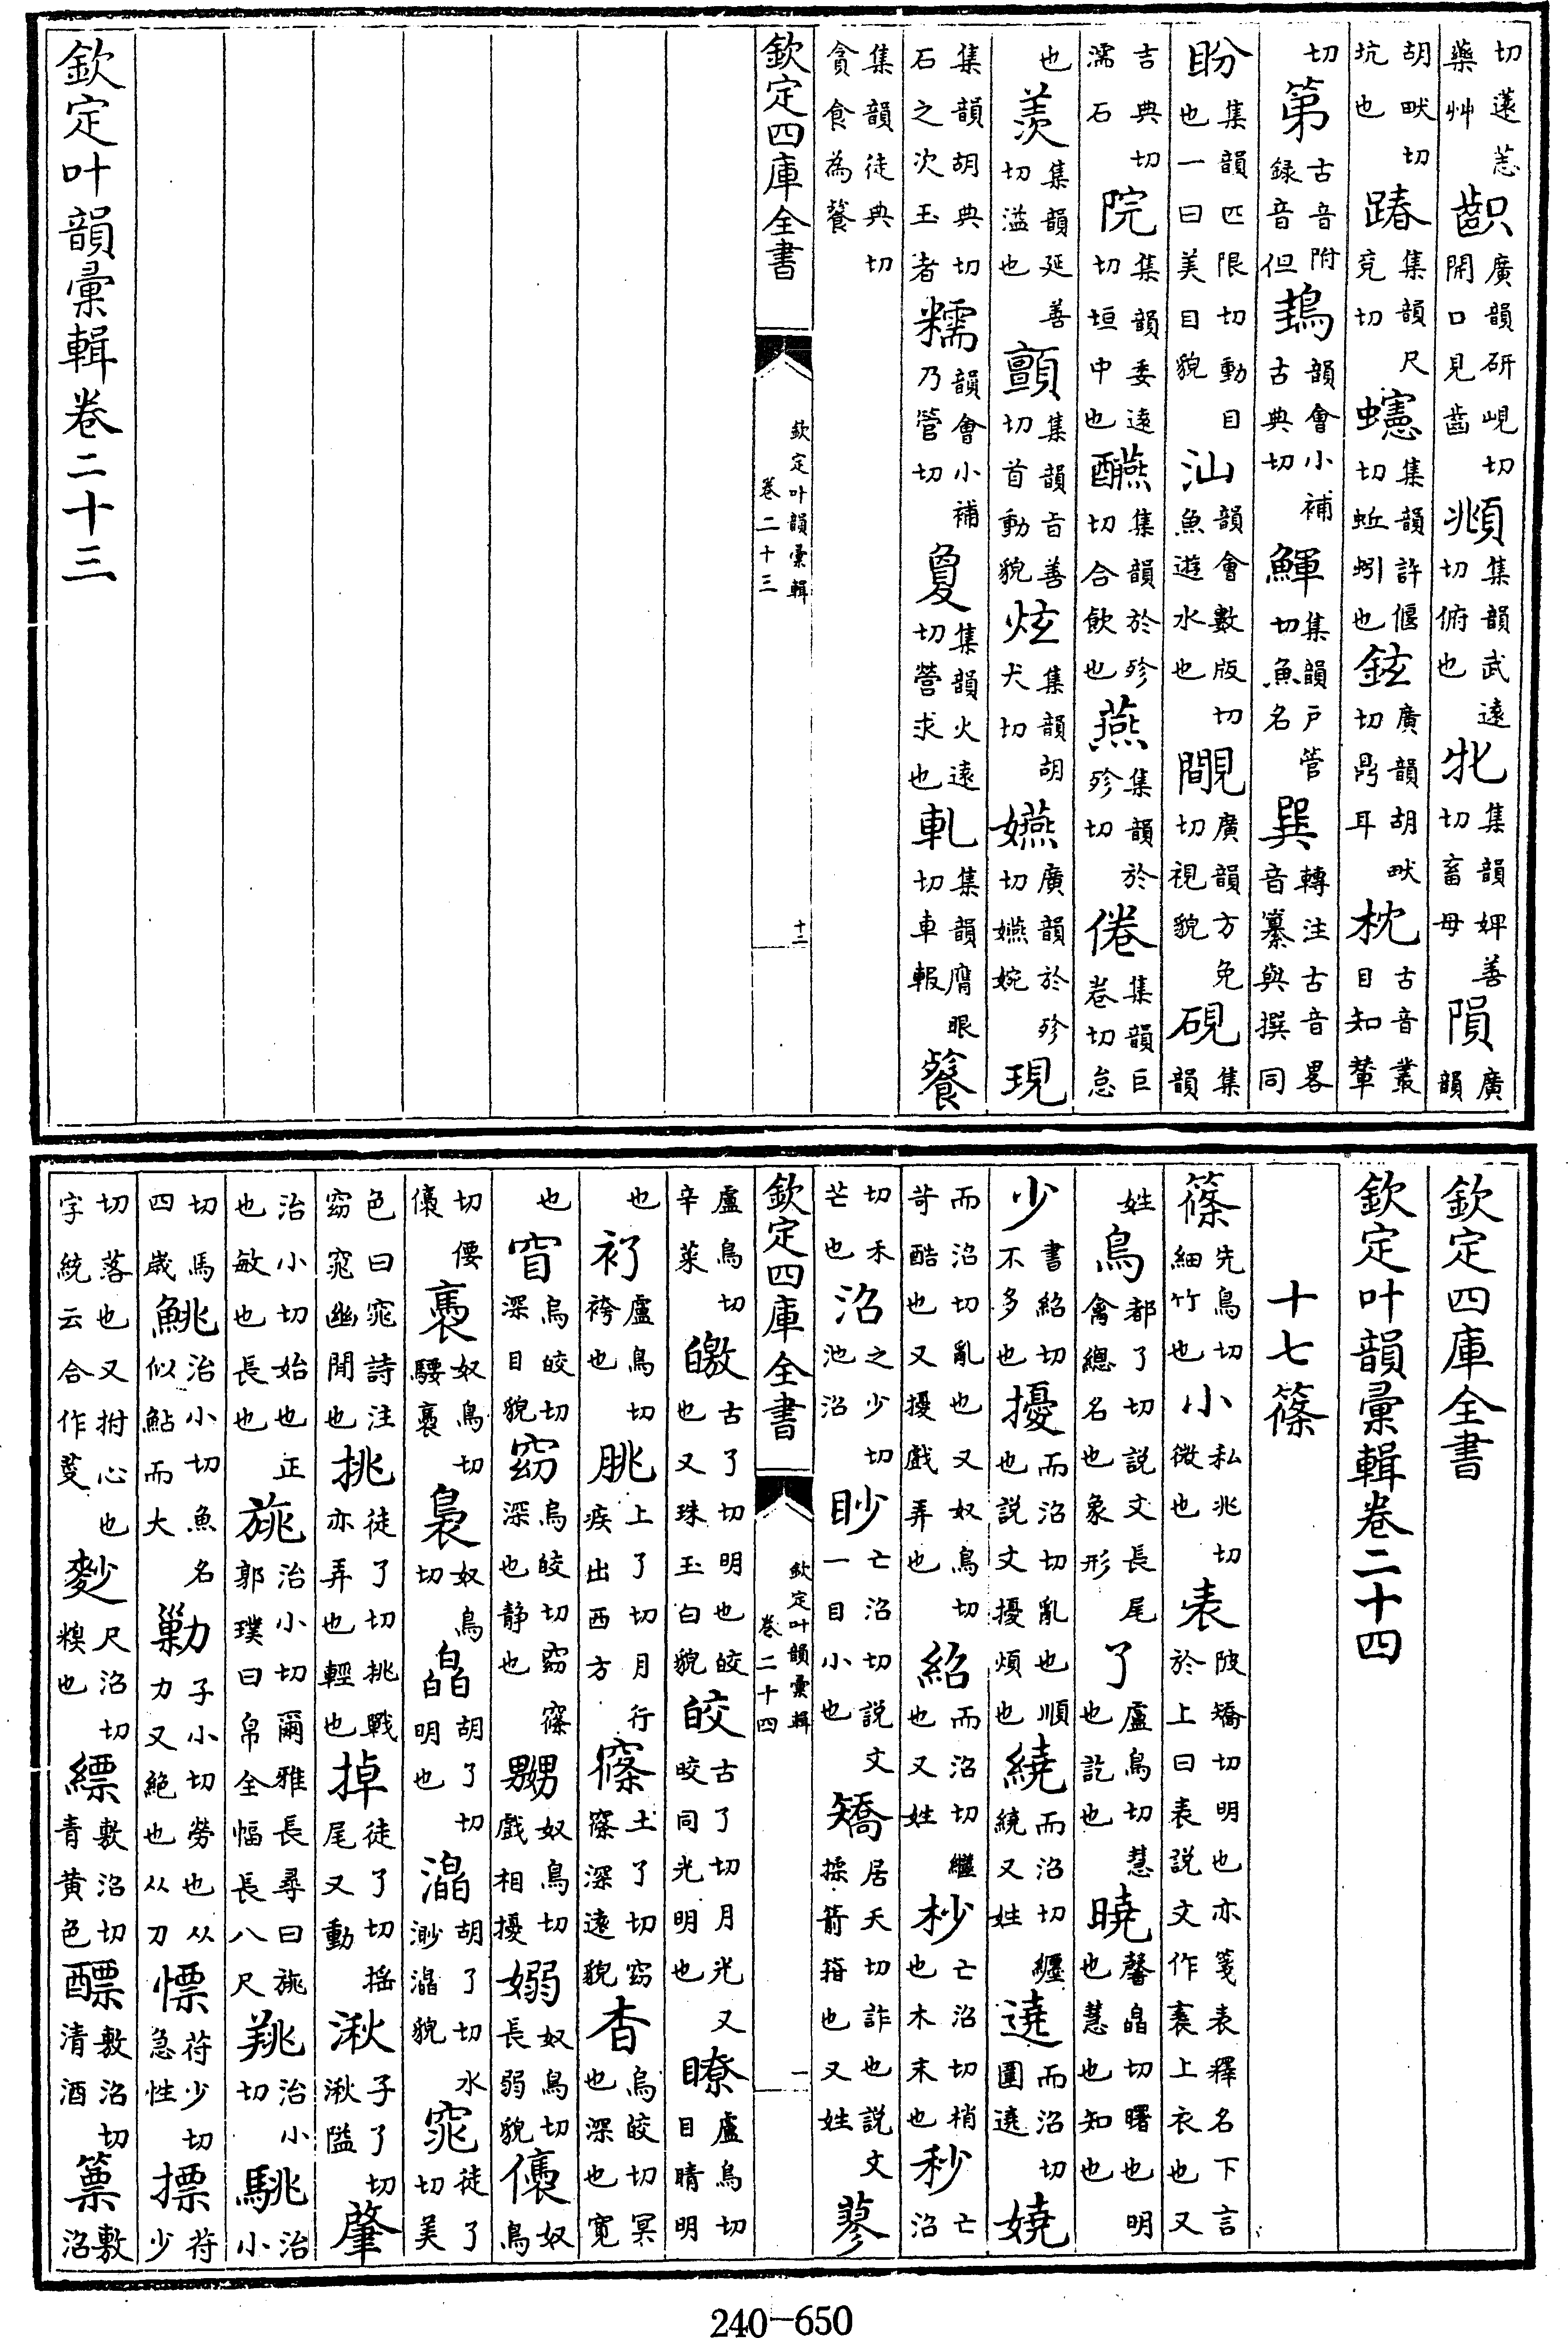 切薳藥艸齞廣韻研峴切開口見齒䫞集韻武遠切俯也牝集韻婢善切畜母隕廣韻
胡畎切坑也踳集韻尺兗切䘆集韻許偃切蚯蚓也鉉廣韻胡畎切鼎耳枕古音叢目知輦
切第古音附録音但韻會小補古典切鯶集韻戶管切魚名巽轉注古音畧音纂與撰同
盼集韻匹限切動目也一曰美目貌汕韻會數版切魚遊水也覵廣韻方免切視貌硯集韻
吉典切濡石院集韻委遠切垣中也醼集韻於殄切合飲也燕集韻於殄切倦集韻巨卷切怠
也羨集韻延善切溢也顫集韻旨善切首動貌炫集韻胡犬切嬿廣韻於殄切嬿婉現
集韻胡典切石之次玉者糯韻會小補乃管切夐集韻火遠切營求也軋集韻膺眼切車輾餮
集韻徒典切貪食為餮
欽定四庫全書
欽定叶韻彚輯
卷二十三
十二
欽定叶韻彚輯卷二十三
欽定四庫全書
欽定叶韻彚輯卷二十四
十七篠
篠先鳥切細竹也小私兆切微也表陂矯切明也亦箋表釋名下言於上曰表說文作裹上衣也又
姓鳥都了切說文長尾禽總名也象形了盧鳥切慧也訖也曉馨皛切曙也明也慧也知也
少書紹切不多也擾而沼切亂也順也說文擾煩也繞而沼切纏繞又姓遶而沼切圍遶嬈
而沼切亂也又奴鳥切苛酷也又擾戲弄也紹而沼切繼也又姓杪亡沼切梢也木末也秒亡沼
切禾芒也沼之少切池沼眇亡沼切說文一目小也矯居夭切詐也說文揉箭箝也又姓蓼
欽定四庫全書
欽定叶韻彚輯
卷二十四
一
盧鳥切辛菜皦古了切明也皎也又珠玉白貌皎古了切月光又晈同光明也瞭盧鳥切目睛明
也衦盧鳥切袴也朓上了切月行疾出西方窱土了切窈窱深遠貌杳烏皎切冥也深也寬
也窅烏皎切深目貌窈烏皎切窈窱深也静也嬲奴鳥切戲相擾嫋奴鳥切長弱貌儴奴鳥
切偠儴褭奴鳥切騕褭裊奴鳥切皛胡了切明也灟胡了切水渺灟貌窕徒了切美
色曰窕詩注窈窕幽閒也挑徒了切挑戰亦弄也輕也掉徒了切揺尾又動湫子了切湫隘肇
治小切始也正也敏也長也旐治小切爾雅長尋曰旐郭璞曰帛全幅長八尺狣治小切駣治小
切馬四歲鮡治小切魚名似鮎而大勦子小切勞也从力又絶也从刀慓苻少切急性摽苻少
切落也又拊心也字統云合作芟麨尺沼切糗也縹敷沼切青黄色醥敷沼切清酒篻敷沼
240-650